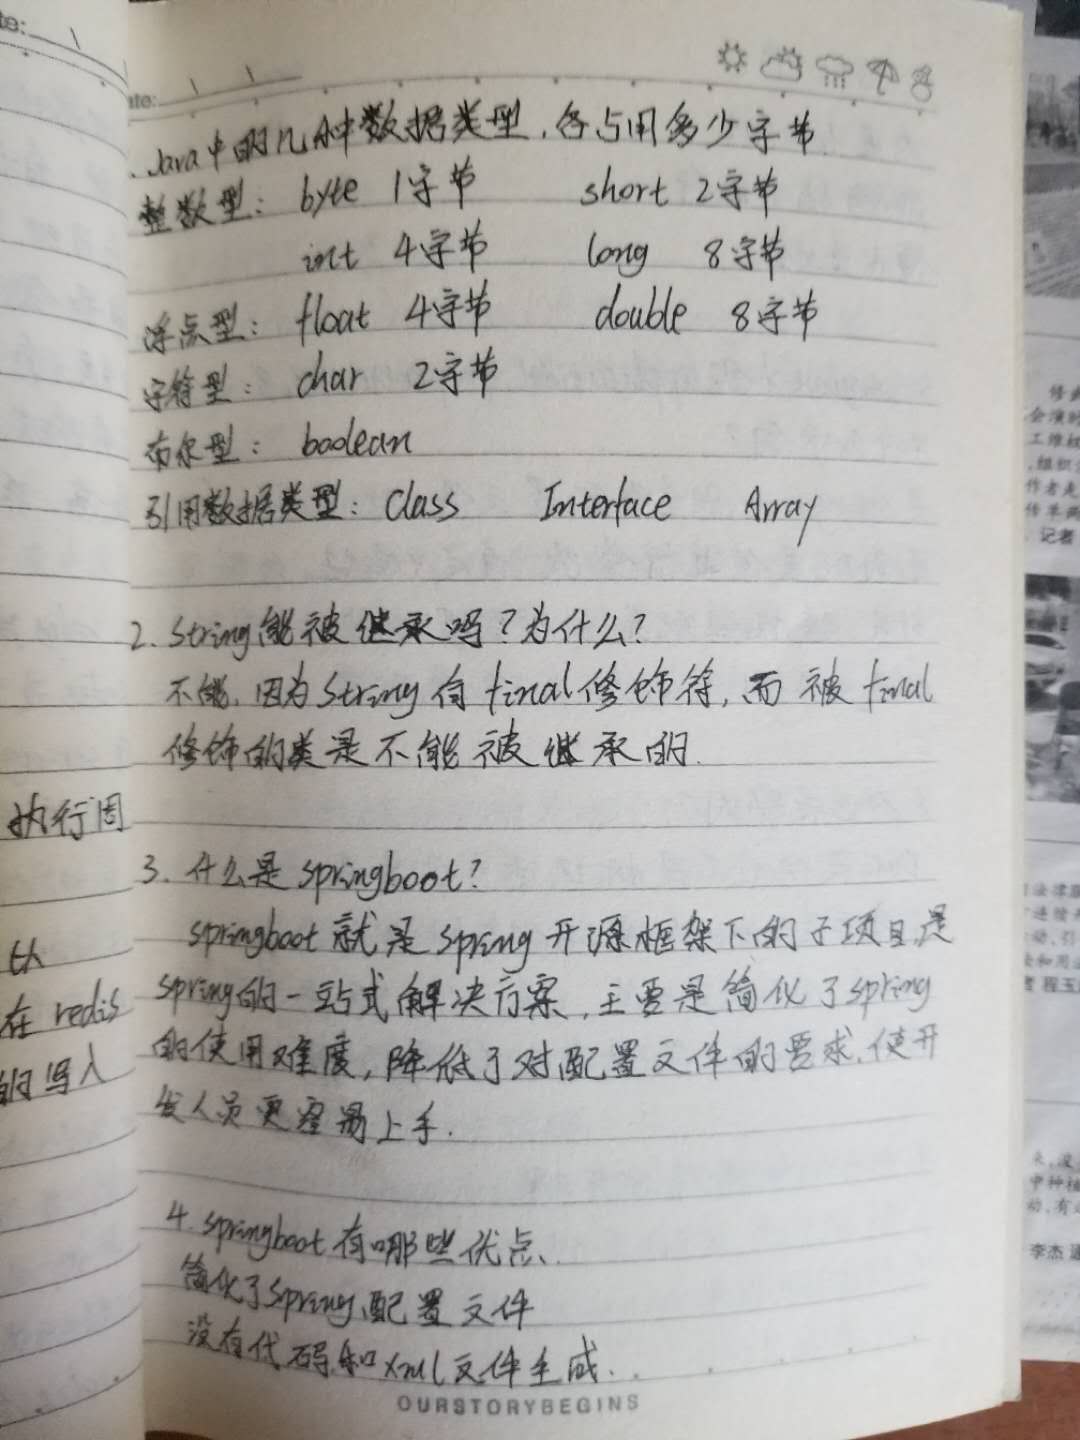 te:
ate:
. Java中的几种数据类型,各占用多少字节.
整数型: byte 1字节 short 2字节
int 4字节 long 8字节
浮点型: float 4字节 double 8字节
字符型: char 2字节
布尔型: boolean
引用数据类型: Class Interface Array
2. String能被继承吗?为什么?
不能,因为String有final修饰符,而被final
修饰的类是不能被继承的.
3. 什么是springboot?
springboot就是spring开源框架下的子项目,是
spring的一站式解决方案,主要是简化了spring
的使用难度,降低了对配置文件的要求,使开
发人员更容易上手.
4. springboot有哪些优点.
简化了spring配置文件
没有代码和xml文件生成.
OURSTORYBEGINS
执行周
在redis
的写入
会演时
工维权
作者先
传单两
记者
李杰